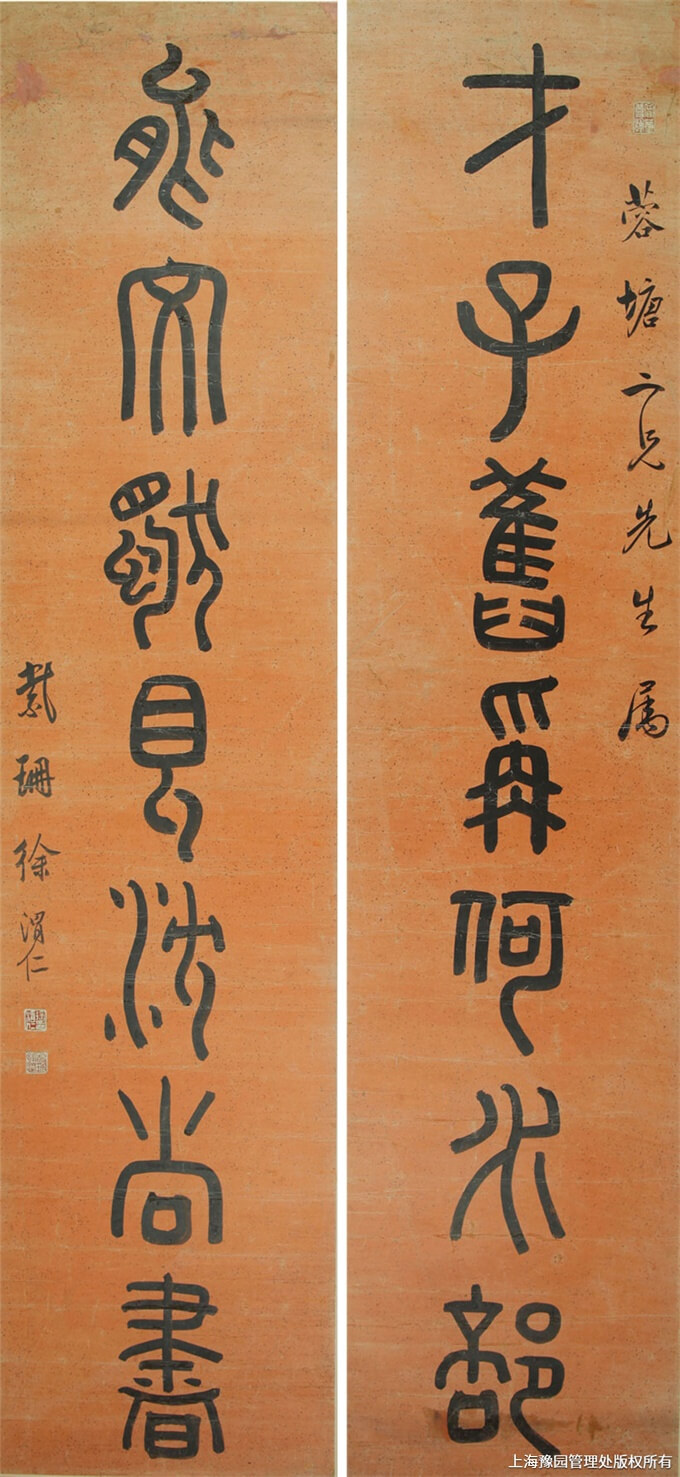 蓉塘二兄先生属
才子舊爯何水部
能文獨見沈尚書
紫珊徐渭仁
上海豫园管理处版权所有